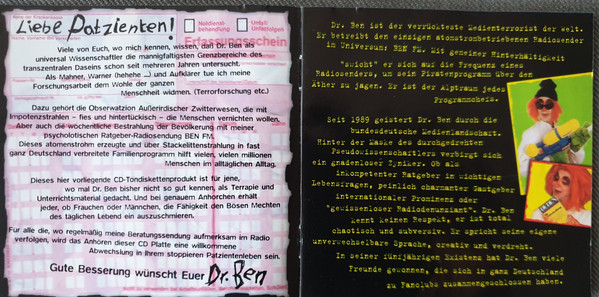 Liebe Patzienten!
Notdienst-
behandlung
Unfall
Unfallfolgen
Erfassungsschein
Viele von Euch, wo mich kennen, wissen, daß Dr. Ben als
universal Wissenschaffter die mannigfaltigsten Grenzbereiche des
transzentralen Daseins schon seit mehreren Jahren untersucht.
Als Mahner, Warner (hehehe ...) und Aufklärer tue ich meine
Forschungsarbeit dem Wohle der ganzen
Menschheit widmen. (Terrorforschung etc.)
Dazu gehört die Obserwatzion Außerirdischer Zwitterwesen, die mit
Impotenzstrahlen - fies und hinterrückisch - die Menschen vernichten wollen.
Aber auch die wöchentliche Bestrahlung der Bevölkerung mit meiner
psychotolischen Ratgeber-Radiosendung BEN FM.
Dieses atomenstrohm erzeugte und über Stackelittenstrahlung in fast
ganz Deutschland verbreitete Familienprogramm hilft vielen, vielen millionen
Menschen im alltäglichen Alltag.
Dieses hier vorliegende CD-Tondiskettenprodukt ist für jene,
wo mal Dr. Ben bisher nicht so gut kennen, als Terrapie und
Unterrichtsmaterial gedacht. Und bei genauem Anhorchen erhält
jeder, ob Frauchen oder Männchen, die Fähigkeit den Bösen Mechten
des täglichen Lebend ein auszuschmieren.
Für alle die, wo regelmäßig meine Beratungssendung aufmerksam im Radio
verfolgen, wird das Anhören dieser CD Platte eine willkommene
Abwechslung in Ihrem stoppieren Patzientenleben sein.
Gute Besserung wünscht Euer Dr. Ben
Dr. Ben ist der verrückteste Medienterrorist der Welt.
Er betreibt den einzigen atomstrombetriebenen Radiosender
im Universum: BEN FM. Mit gemeiner Hinterhältigkeit
"swicht" er sich auf die Frequenz eines
Radiosenders, um sein Piratenprogramm über den
Äther zu jagen. Er ist der Alptraum jedes
Programmchefs.
Seit 1989 geistert Dr. Ben durch die
bundesdeutsche Medienlandschaft.
Hinter der Maske des durchgedrehten
Pseudowissenschaftlers verbirgt sich
ein gnadenloser Zyniker. Ob als
inkompetenter Ratgeber in wichtigen
Lebensfragen, peinlich charmanter Gastgeber
internationaler Prominenz oder
"gewissenloser Radiodenunziant". Dr. Ben
kennt keinen Respekt, er ist total
chaotisch und subversiv. Er spricht seine eigene
unverwechselbare Sprache, creativ und verdreht.
In seiner fünfjährigen Existenz hat Dr. Ben viele
Freunde gewonnen, die sich in ganz Deutschland
zu Fanclubs zusammengeschlossen haben.